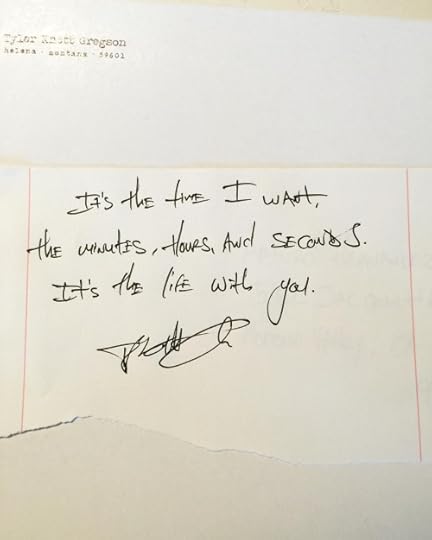 Tyler Knott Gregson
helena · montana · 59601
It's the time I want,
the minutes, hours, and seconds.
It's the life with you.